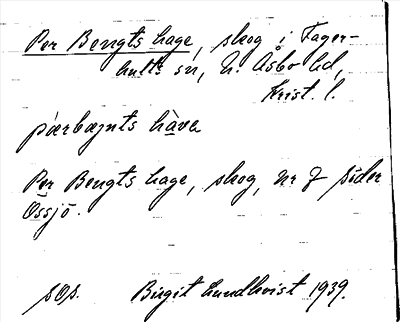 Per Bengts hage, skog i Fager-
hults sn, N. Åsbo hd,
Krist. l.
pærbæŋts hava
Per Bengts hage, skog, nr 7 söder
Össjö.
sOs. Birgit Lundkvist 1939.